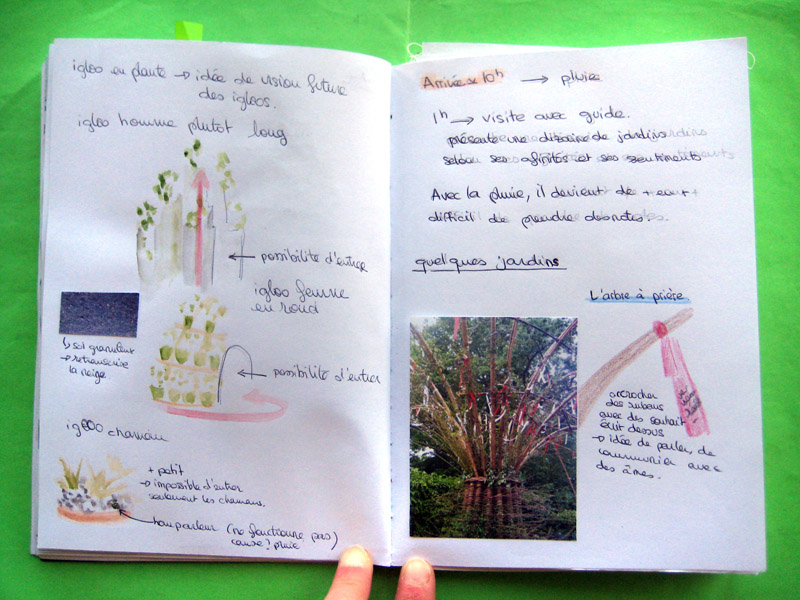 igloo en plante → idée de vision future
des igloos.
igloo homme plutot long
← possibilité d'entrer
igloo femme
en rond
↳ sol granuleux
→ retranscrire
la neige
← possibilité d'entrer
igloo chaman
+ petit
→ impossible d'entrer
seulement les chamans.
← haut parleur (ne fonctionne pas)
cause? pluie
Arrivée de 10h → pluie
1h → visite avec guide.
présente une dizaine de jardins
selon ses afinités et ses sentiments
Avec la pluie, il devient de + en +
difficil de prendre des notes.
quelques jardins
L'arbre à prière
accrocher
des rubans
avec des souhait
écrit dessus
→ idée de parler, de
communier avec
des âmes.